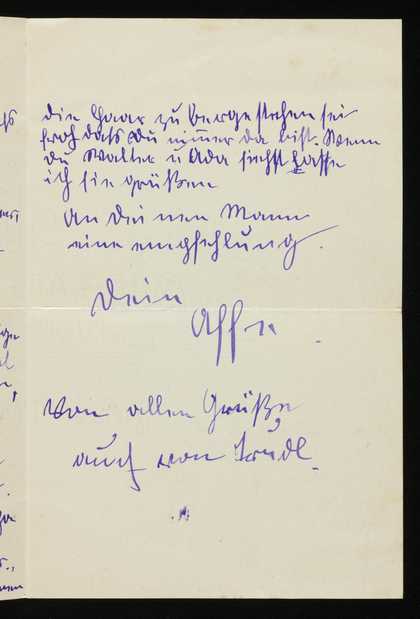 die Haar zu berge stehen sei
froh dass du nimmer da bist. Wenn
du Walter u Ada siehst lasse
ich sie grüßen
An deinen Mann
eine empfehlung.
Dein
Affe.
Von allen Grüße
auch von Trudl.